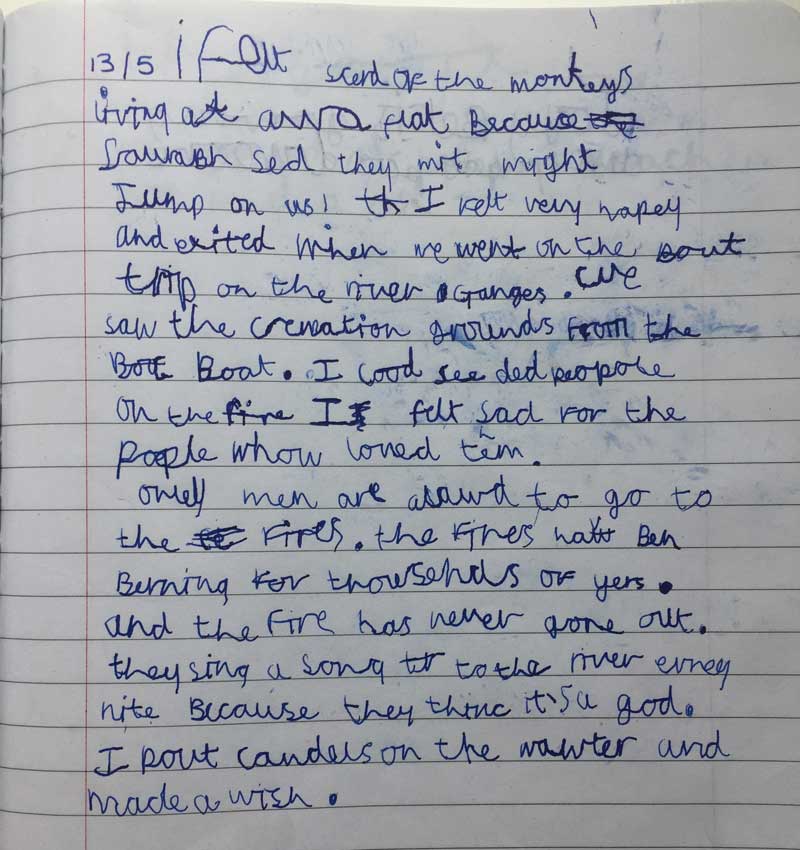 13/5 i Felt scerd of the monkeys
living at awa flat Because
Saurabh sed they mit might
Jump on us! th I felt very hapey
and exited when we went on the bout
trip on the river Ganges. we
saw the cremation grounds from the
Bot Boat. I cood see ded peopole
on the fire I felt sad for the
poeple whow loved tem.
onley men are alawd to go to
the fires. the fires hav Ben
Berning For thowsends of yers.
and the fire has never gone out.
they sing a song tr to the river evrey
nite Because they thinc it's a god.
I pout candels on the wawter and
made a wish.